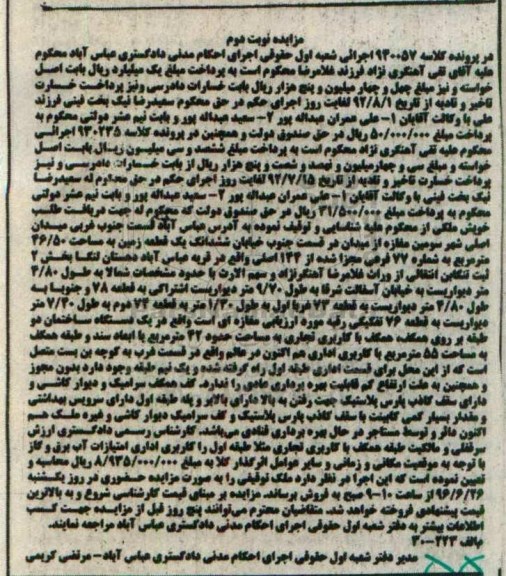 مزایده نوبت دوم
در پرونده کلاسه ۹۳۰۰۵۷ اجرائی شعبه اول حقوقی اجرای احکام مدنی دادگستری عباس آباد محکوم
علیه آقای تقی آهنگری نژاد فرزند غلامرضا محکوم است به پرداخت مبلغ یک میلیارد ریال بابت اصل
خواسته و نیز مبلغ چهل و چهار میلیون و پنج هزار ریال بابت خسارات دادرسی ونیز پرداخت خسارت
تاخیر و تادیه از تاریخ ۹۲/۸/۱ لغایت روز اجرای حکم در حق محکوم سعیدرضا نیک بخت فینی فرزند
علی با وکالت آقایان ۱- علی عمران عبداله پور ۲- سعید عبداله پور و بابت نیم عشر دولتی محکوم به
پرداخت مبلغ ۵۰/۰۰۰/۰۰۰ ریال در حق صندوق دولت و همچنین در پرونده کلاسه ۹۳۰۲۳۵ اجرائی
محکوم علیه تقی آهنگری نژاد محکوم است به پرداخت مبلغ ششصد و سی میلیون ریال بابت اصل
خواسته و مبلغ سی و چهارمیلیون و نهصد و شصت و پنج هزار ریال از بابت خسارات دادرسی و نیز
پرداخت خسارت تاخیر و تادیه از تاریخ ۹۲/۷/۱۵ لغایت روز اجرای حکم در حق محکوم له سعیدرضا
نیک بخت فینی با وکالت آقایان ۱- علی عمران عبداله پور ۲- سعید عبداله پور و بابت نیم عشر دولتی
محکوم به پرداخت مبلغ ۳۱/۵۰۰/۰۰۰ ریال در حق صندوق دولت که محکوم له جهت دریافت طلب
خویش ملکی از محکوم علیه شناسایی و توقیف نموده به آدرس عباس آباد قسمت جنوب غربی میدان
اصلی شهر سومین مغازه از میدان در قسمت جنوب خیابان ششدانگ یک قطعه زمین به مساحت ۴۶/۵۰
مترمربع به شماره ۷۷ فرعی مجزا شده از ۱۴۴ اصلی واقع در قریه عباس آباد دهستان لنگا بخش ۲
ثبت تنکابن انتقالی از وراث غلامرضا آهنگرنژاد و سهم الارث با حدود مشخصات شمالا به طول ۴/۸۰
متر دیواریست به خیابان آسفالت شرقا به طول ۹/۷۰ متر دیواریست اشتراکی به قطعه ۷۸ و جنوبا به
طول ۴/۸۰ متر دیواریست به قطعه ۷۳ غربا اول به طول ۱/۳۰ متر به قطعه ۷۴ دوم به طول ۷/۴۰ متر
دیواریست به قطعه ۷۶ تفکیکی رقبه مورد ارزیابی مغازه ای است واقع در یک دستگاه ساختمان دو
طبقه بر روی همکف، همکف با کاربری تجاری به مساحت حدود ۴۲ مترمربع با ابعاد سند و طبقه همکف
به مساحت ۵۵ مترمربع با کاربری اداری هم اکنون در عالم واقع در قسمت غرب به کوچه بن بست متصل
است که از این محل برای قسمت اداری طبقه اول راه گرفته شده و یک نیم طبقه وجود دارد بدون مجوز
و همچنین به علت ارتفاع کم قابلیت بهره برداری عادی را ندارد. کف همکف سرامیک و دیوار کاشی و
دارای سقف کاذب پارس پلاستیک جهت رفتن به بالا دارای بالابر و پله طبقه اول دارای سرویس بهداشتی
و مقدار بسیار کمی کابینت با سقف کاذب پارس پلاستیک و کف سرامیک دیوار کاشی و غیره ملک هم
اکنون دائر و توسط مستاجر در حال بهره برداری قنادی می‌باشد. کارشناس رسمی دادگستری ارزش
سرقفلی و مالکیت طبقه همکف با کاربری تجاری مثلا طبقه اول را کاربری اداری امتیازات آب برق و گاز
با توجه به موقعیت مکانی و زمانی و سایر عوامل اثرگذار کلا به مبلغ ۸/۹۳۵/۰۰۰/۰۰۰ ریال محاسبه و
تعیین نموده است که این اجرا در نظر دارد ملک توقیفی را به صورت مزایده حضوری در روز یکشنبه
۹۶/۶/۲۶ از ساعت ۱۰-۹ صبح به فروش برساند. مزایده بر مبنای قیمت کارشناسی شروع و به بالاترین
قیمت پیشنهادی فروخته خواهد شد. متقاضیان محترم می‌توانند پنج روز قبل از مزایده جهت کسب
اطلاعات بیشتر به دفتر شعبه اول حقوقی اجرای احکام مدنی دادگستری عباس آباد مراجعه نمایند.
م/الف ۲۲۳-۳۰
مدیر دفتر شعبه اول حقوقی اجرای احکام مدنی دادگستری عباس آباد - مرتضی کریمی